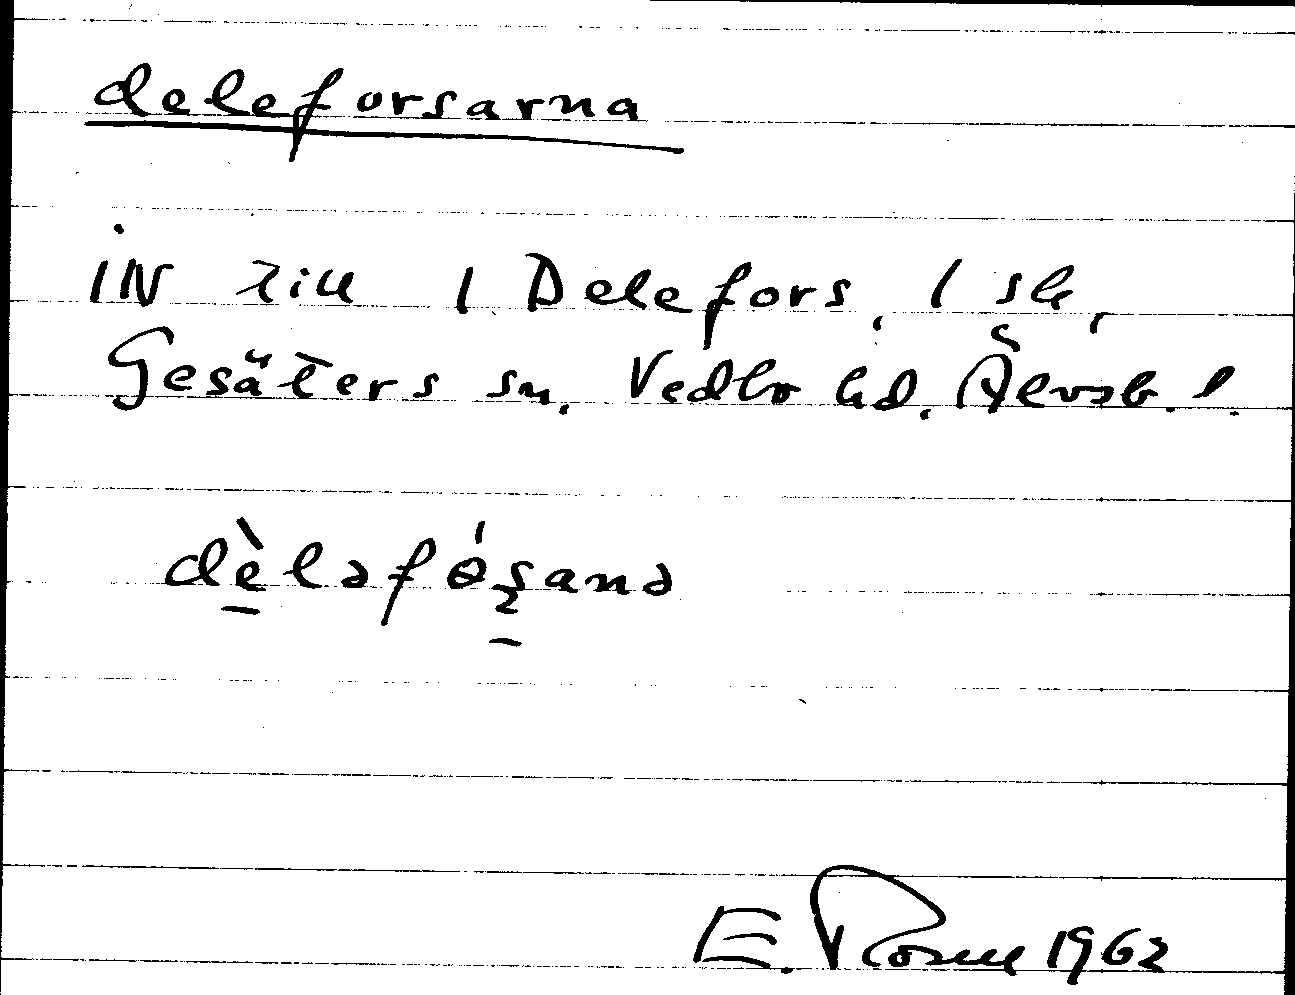 deleforsarna
iN till 1 Delefors, 1 sk,
Gesäters sn. Vedbo hd. Älvsb. l.
dèləfɵ́ꞩanə
E. 1962